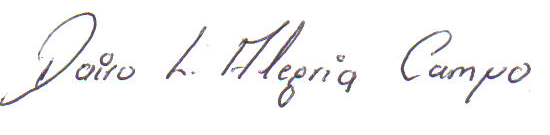 Dairo L. Alegria Campo